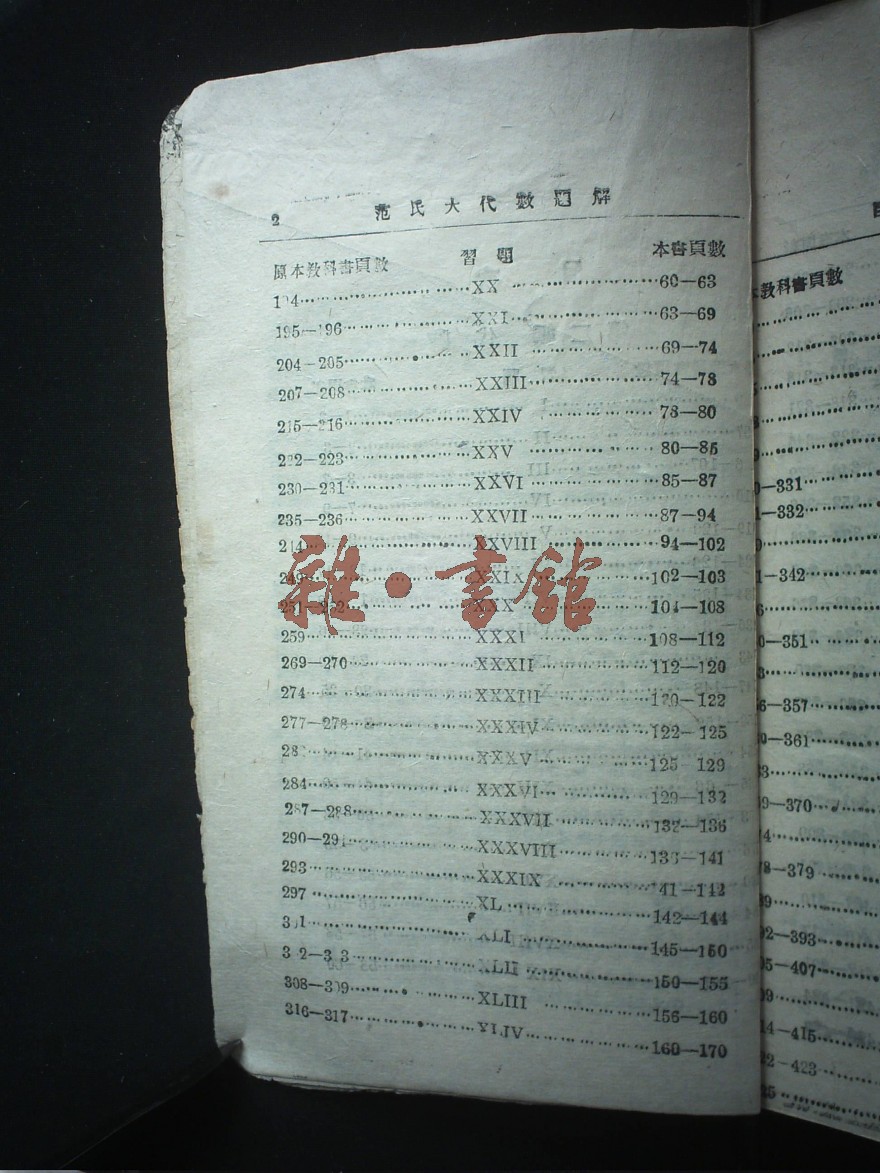 2 范氏大代數題解
原本教科書頁數 習題 本書頁數
XX 60—63
195—196 XXI 63—69
204—205 XXII 69—74
207—208 XXIII 74—78
215—216 XXIV 78—80
222—223 XXV 80—85
230—231 XXVI 85—87
235—236 XXVII 87—94
244 XXVIII 94—102
XXIX 102—103
XXX 104—108
259 XXXI 108—112
269—270 XXXII 112—120
274 XXXIII 120—122
277—278 XXXIV 122—125
XXXV 125—129
284 XXXVI 129—132
287—288 XXXVII 132—136
290—291 XXXVIII 136—141
293 XXXIX 141—142
297 XL 142—144
301 XLI 145—150
302—303 XLII 150—155
308—309 XLIII 156—160
316—317 XLIV 160—170
雜·書館
教科書頁數
—331
—332
—342
—351
—357
—361
—370
—379
—393
—407
—415
—423